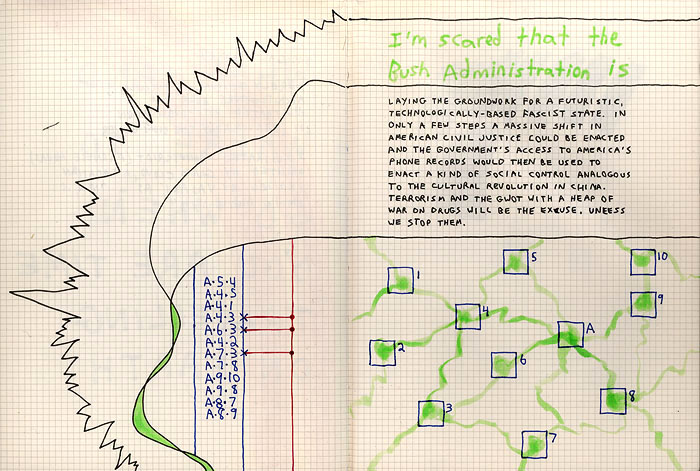 I'm scared that the
Bush Administration is
LAYING THE GROUNDWORK FOR A FUTURISTIC,
TECHNOLOGICALLY-BASED FASCIST STATE. IN
ONLY A FEW STEPS A MASSIVE SHIFT IN
AMERICAN CIVIL JUSTICE COULD BE ENACTED
AND THE GOVERNMENT'S ACCESS TO AMERICA'S
PHONE RECORDS WOULD THEN BE USED TO
ENACT A KIND OF SOCIAL CONTROL ANALOGOUS
TO THE CULTURAL REVOLUTION IN CHINA.
TERRORISM AND THE GWOT WITH A HEAP OF
WAR ON DRUGS WILL BE THE EXCUSE. UNLESS
WE STOP THEM.
A·5·4
A·4·5
A·4·1
A·4·3
A·6·3
A·4·2
A·7·3
A·7·8
A·9·10
A·9·8
A·8·7
A·8·9
1
5
10
9
4
A
2
6
3
8
7